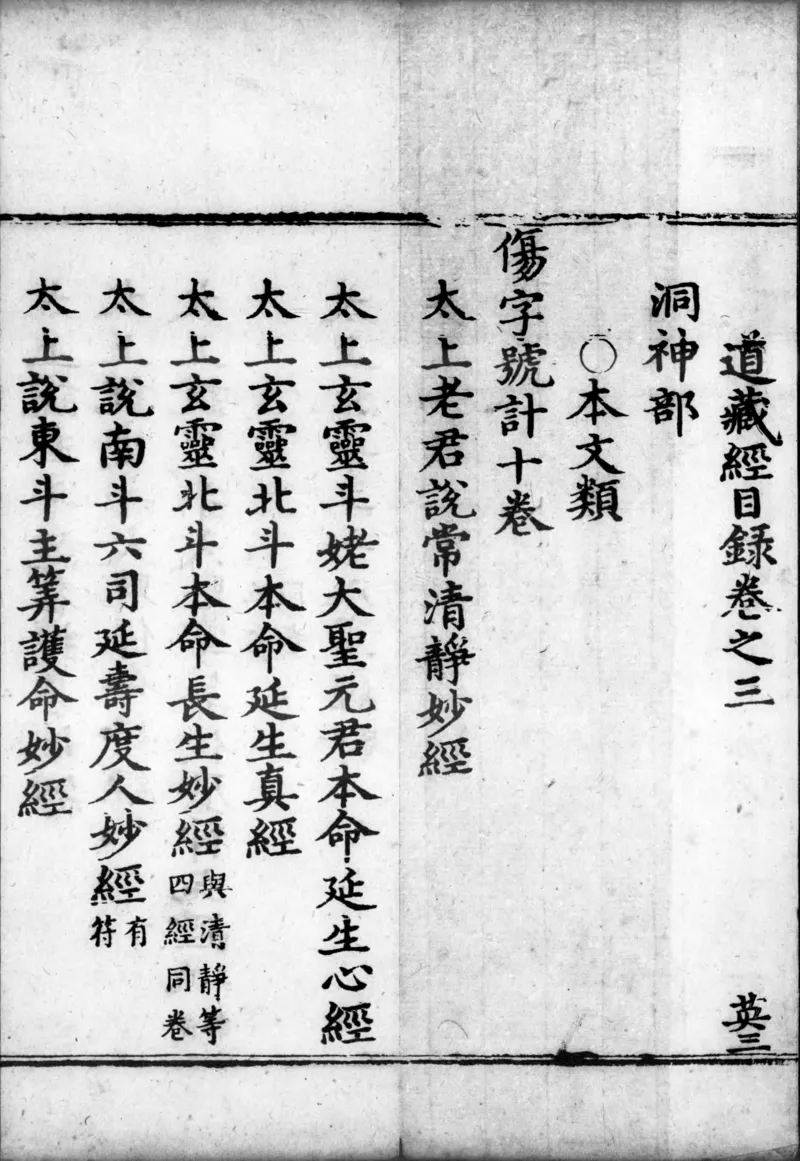 道藏經目録卷之三
英三
洞神部
○本文類
傷字號計十卷
太上老君說常清靜妙經
太上玄靈斗姥大聖元君本命延生心經
太上玄靈北斗本命延生真經
太上玄靈北斗本命長生妙經與清靜等四經同卷
太上說南斗六司延壽度人妙經有符
太上說東斗主筭護命妙經